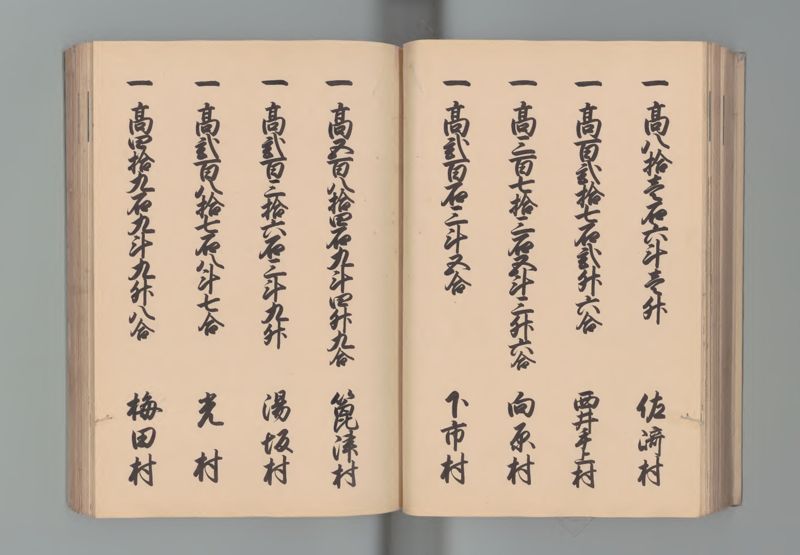 一 高八拾壱石六斗壱升 佐済村
一 高百弐拾七石弐升六合 西井手上村
一 高三百七拾三石五斗三升六合 向原村
一 高弐百石三斗五合 下市村
一 高五百八拾四石九斗四升九合 篦津村
一 高弐百三拾六石三斗九升 湯坂村
一 高弐百八拾七石八斗七合 光村
一 高四拾九石九斗九升八合 梅田村